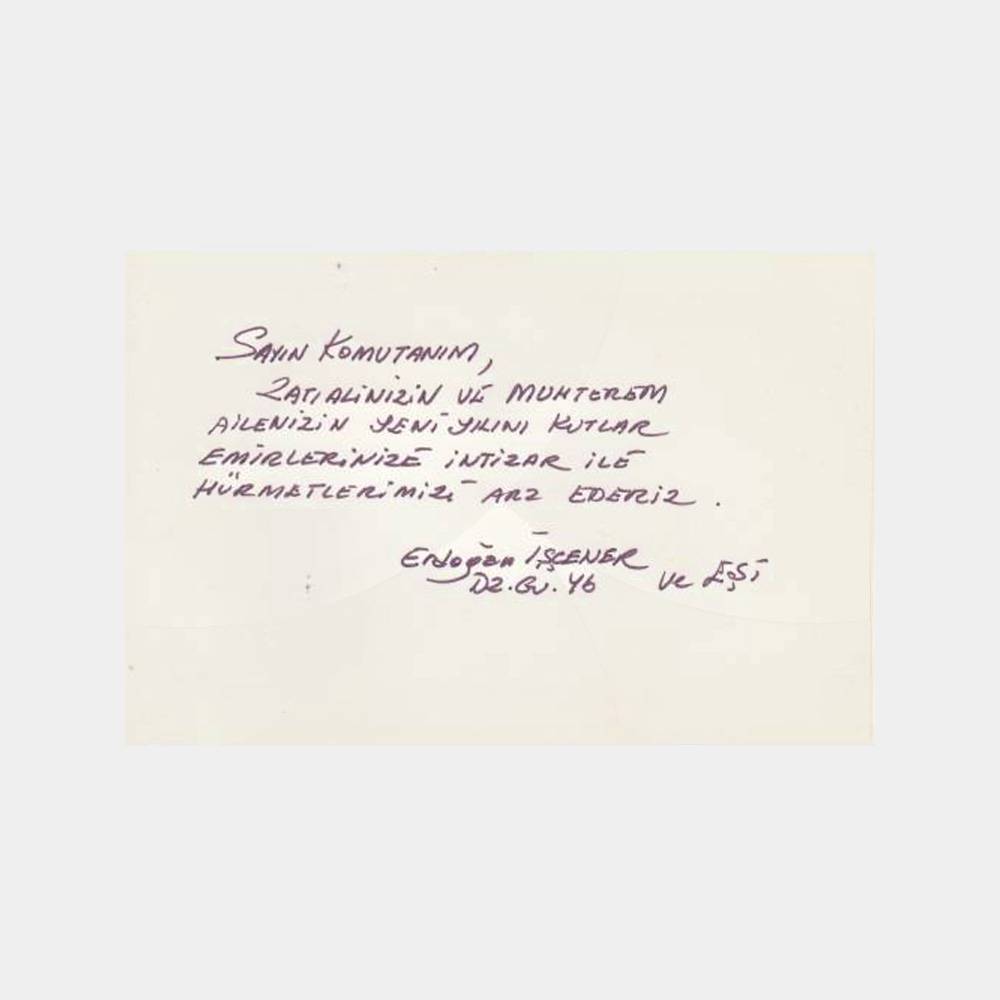 SAYIN KOMUTANIM,
ZATIALİNİZİN VE MUHTEREM
AİLENİZİN YENİ YILINI KUTLAR
EMİRLERİNİZE İNTİZAR İLE
HÜRMETLERİMİZİ ARZ EDERİZ .
Erdoğan İŞÇENER
DZ.GV.Yb ve EŞİ